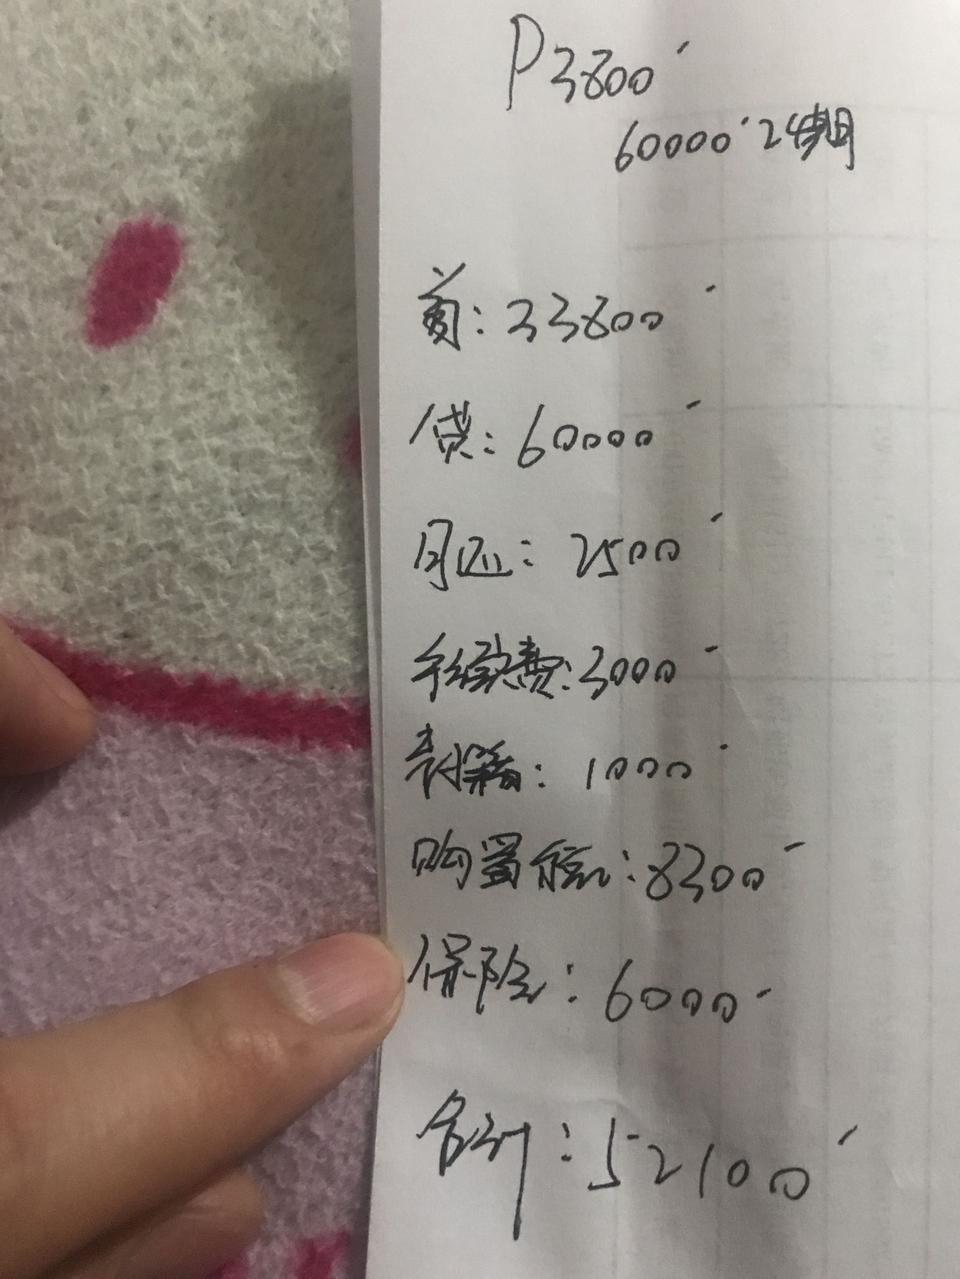 P3800
60000 24期
首: 33800
贷: 60000
月还: 2500
手续费: 3000
: 1000
购置税: 8300
保险: 6000
合计: 52100